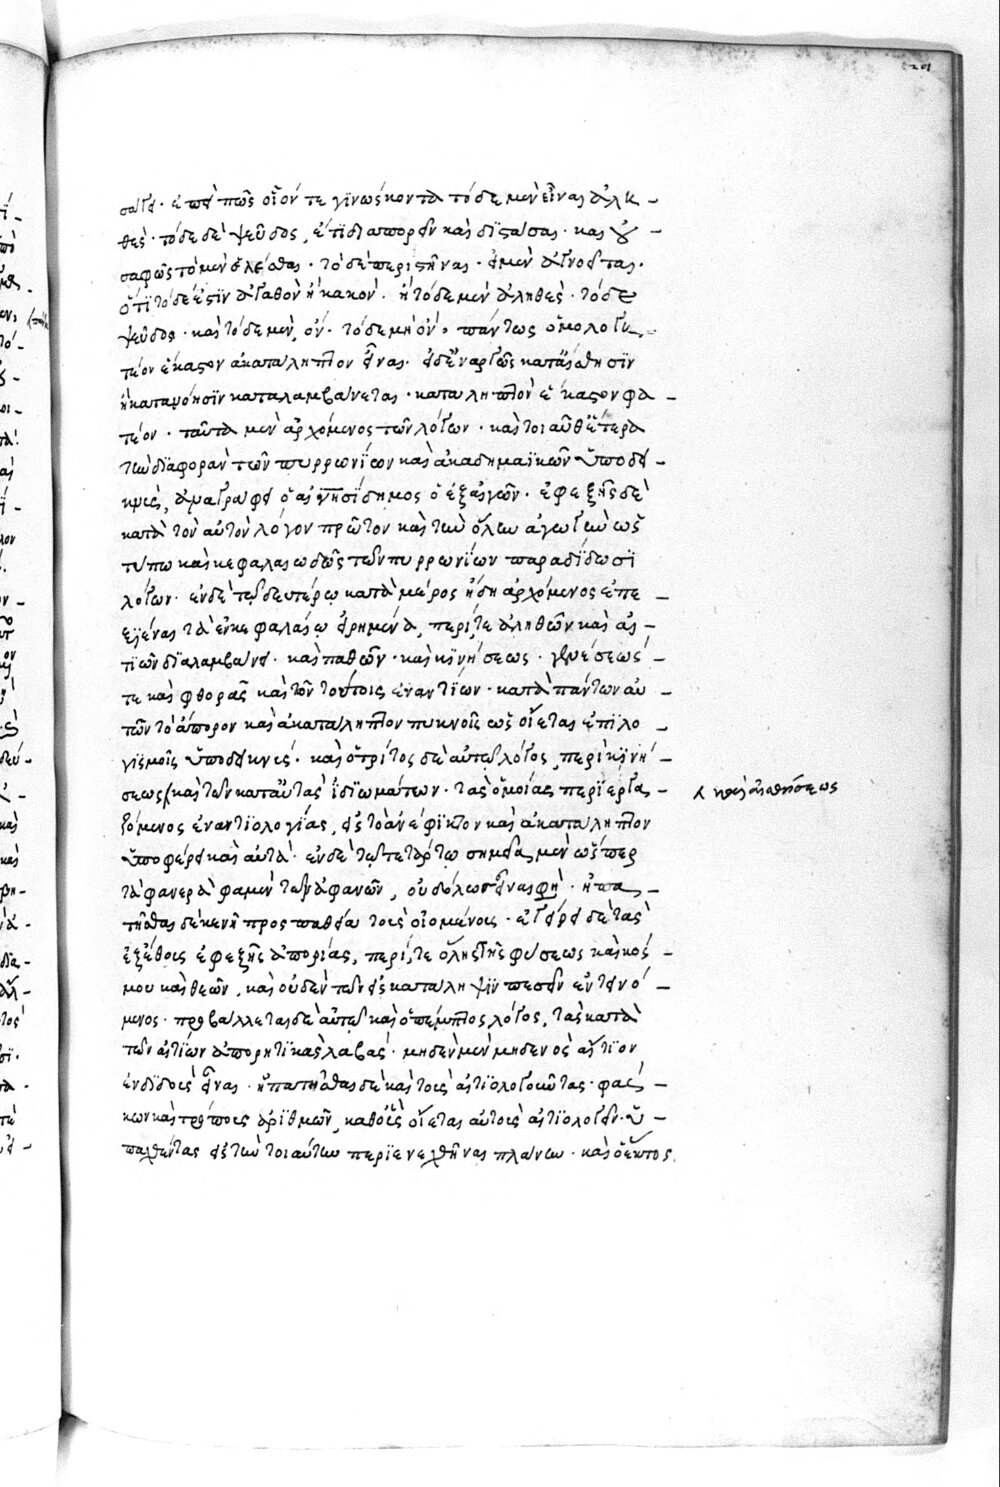 201
σαιτο· ἐπεὶ πῶς οἷόν τε γινώσκοντα τόδε μὲν εἶναι ἀλη-
θὲς· τόδε δὲ ψεῦδος, ἔτι διαπορεῖν καὶ διστάσαι· καὶ οὐ -
σαφῶς τὸ μὲν ἑλέσθαι· τὸ δὲ περιστῆναι· εἰ μὲν ἀγνοεῖται·
ὅτι τόδε ἐστὶν ἀγαθὸν ἢ κακόν· ἢ τόδε μὲν ἀληθὲς· τόδε
ψεῦδος· καὶ τόδε μὲν, ὂν· τόδε μὴ ὄν· πάντως ὁμολογη-
τέον ἕκαστον ἀκατάληπτον εἶναι· εἰ δ' ἐναργῶς κατ' αἴσθησιν
ἢ κατὰ νόησιν καταλαμβάνεται· καταληπτὸν ἕκαστον φα -
τέον· ταῦτα μὲν ἀρχόμενος τῶν λόγων· καὶ τοιαῦθ' ἕτερα
τὴν διαφορὰν τῶν πυρρωνίων καὶ ἀκαδημαϊκῶν ὑποδει -
κνὺς, ἀναγράφει ὁ αἰνησίδημος ὁ ἐξ αἰγῶν· ἐφεξῆς δὲ
κατὰ τὸν αὐτὸν λόγον πρῶτον καὶ τὴν ὅλην ἀγωγὴν ὡς
τύπω καὶ κεφαλαιωδῶς τῶν πυρρωνίων παραδίδωσι
λόγων· ἐν δὲ τῷ δευτέρῳ κατὰ μέρος ἤδη ἀρχόμενος ἐπε -
ξιέναι τὰ ἐν κεφαλαίῳ εἰρημένα, περί τε ἀληθῶν καὶ αἰ -
τιῶν διαλαμβάνει· καὶ παθῶν· καὶ κινήσεως· γενέσεώς -
τε καὶ φθορᾶς καὶ τῶν τούτοις ἐναντίων· κατὰ πάντων αὐ -
τῶν τὸ ἄπορον καὶ ἀκατάληπτον πυκνοῖς ὡς οἴεται ἐπιλο -
γισμοῖς ὑποδεικνύς· καὶ ὁ τρίτος δὲ αὐτῷ λόγος, περὶ κινή -
σεως καὶ τῶν κατὰ ταύτας ἰδιωμάτων· τὰς ὁμοίας περιεργα -
ζόμενος ἐναντιολογίας, εἰς τὸ ἀνέφικτον καὶ ἀκατάληπτον
ὑποφέρει καὶ αὐτά· ἐν δὲ τῷ τετάρτῳ σημεῖα μὲν ὥσπερ
τὰ φανερὰ φαμὲν τῶν ἀφανῶν, οὐδ' ὅλως εἶναι φησὶ· ἠπα -
τῆσθαι δὲ κενῇ προσπαθείᾳ τοὺς οἰομένους· ἐγείρει δὲ τὰς
ἐξ ἔθους ἐφεξῆς ἀπορίας, περί τε ὅλης τῆς φύσεως καὶ κόσ -
μου καὶ θεῶν, καὶ οὐδὲν τῶν εἰς κατάληψιν πεσεῖν ἐντεινό -
μενος· προβάλλεται δὲ αὐτῷ καὶ ὁ πέμπτος λόγος, τὰς κατὰ
τῶν αἰτίων ἀπορητικὰς λαβὰς· μηδὲν μὲν μηδενὸς αἴτιον
ἐνδιδοὺς εἶναι· ἠπατῆσθαι δὲ καὶ τοὺς αἰτιολογοῦντας· φάσ -
κων καὶ τρόπους ἀριθμῶν, καθ' οὓς οἴεται αὐτοὺς αἰτιολογεῖν ὑ -
παχθέντας εἰς τὴν τοιαύτην περιενεχθῆναι πλάνην· καὶ ὁ ἕκτος
καὶ αἰσθήσεως